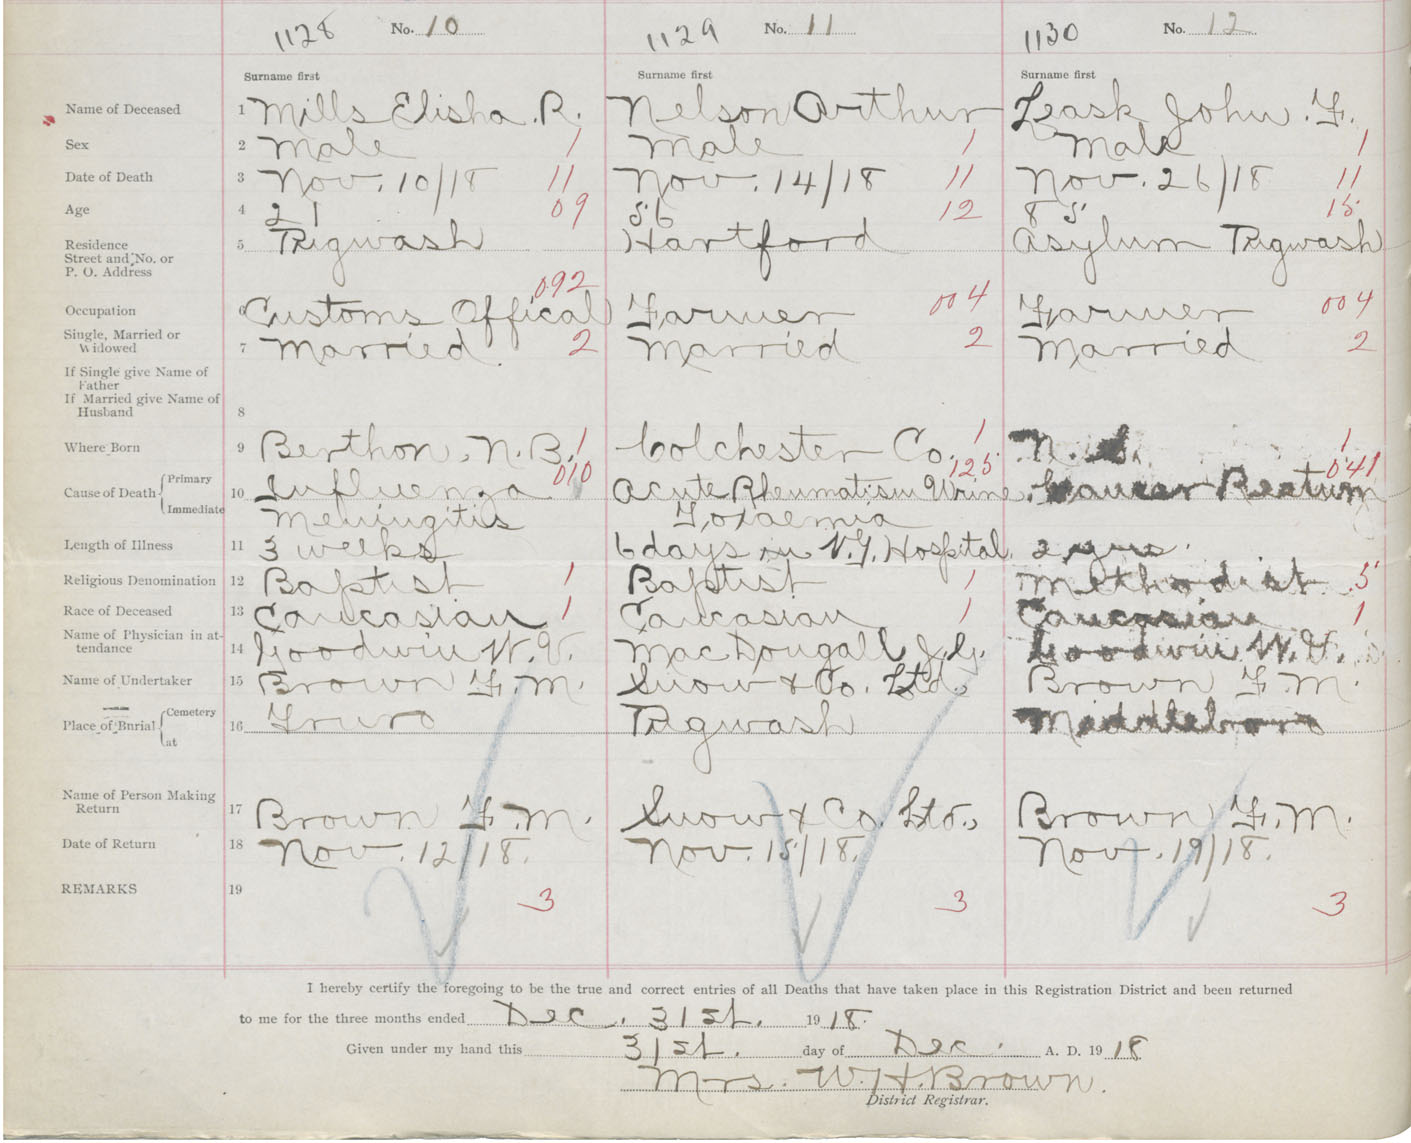 1128 No. 10 1129 No. 11 1130 No. 12
Surname first Surname first Surname first
Name of Deceased 1 Mills Elisha. R. Nelson Arthur Leask John. F.
Sex 2 Male 1 Male 1 Male 1
Date of Death 3 Nov. 10/18 11 Nov. 14/18 11 Nov. 26/18 11
Age 4 21 09 56 12 85 15
Residence 5 Pugwash Hartford Asylum Pugwash
Street and No. or
P. O. Address
092
Occupation 6 Customs Offical Farmer 004 Farmer 004
Single, Married or
Widowed 7 Married. 2 Married 2 Married 2
If Single give Name of
Father
If Married give Name of
Husband 8
Where Born 9 Berthon, N. B. 1 Colchester Co. 1 N. S. 1
010 125 041
Cause of Death Primary 10 Influenza Acute Rheumatism Urine Cancer Rectum
Immediate Meningitis Toxaemia
Length of Illness 11 3 weeks 6 days in N.G. Hospital. 2 yrs.
Religious Denomination 12 Baptist 1 Baptist 1 Methodist. 5
Race of Deceased 13 Caucasian 1 Caucasian 1 Caucasian 1
Name of Physician in at-
tendance 14 Goodwin W.V. MacDougall J.G. Goodwin W.V.
Name of Undertaker 15 Brown F.M. Snow & Co. Ltd. Brown F.M.
Place of Burial Cemetery 16 Truro Pugwash Middleboro
at
Name of Person Making
Return 17 Brown F.M. Snow & Co. Ltd., Brown F.M.
Date of Return 18 Nov. 12/18. Nov. 15/18. Nov. 19/18.
REMARKS 19 3 3 3
I hereby certify the foregoing to be the true and correct entries of all Deaths that have taken place in this Registration District and been returned
to me for the three months ended Dec. 31st. 1918.
Given under my hand this 31st. day of Dec. A. D. 1918
Mrs. W.H. Brown.
District Registrar.